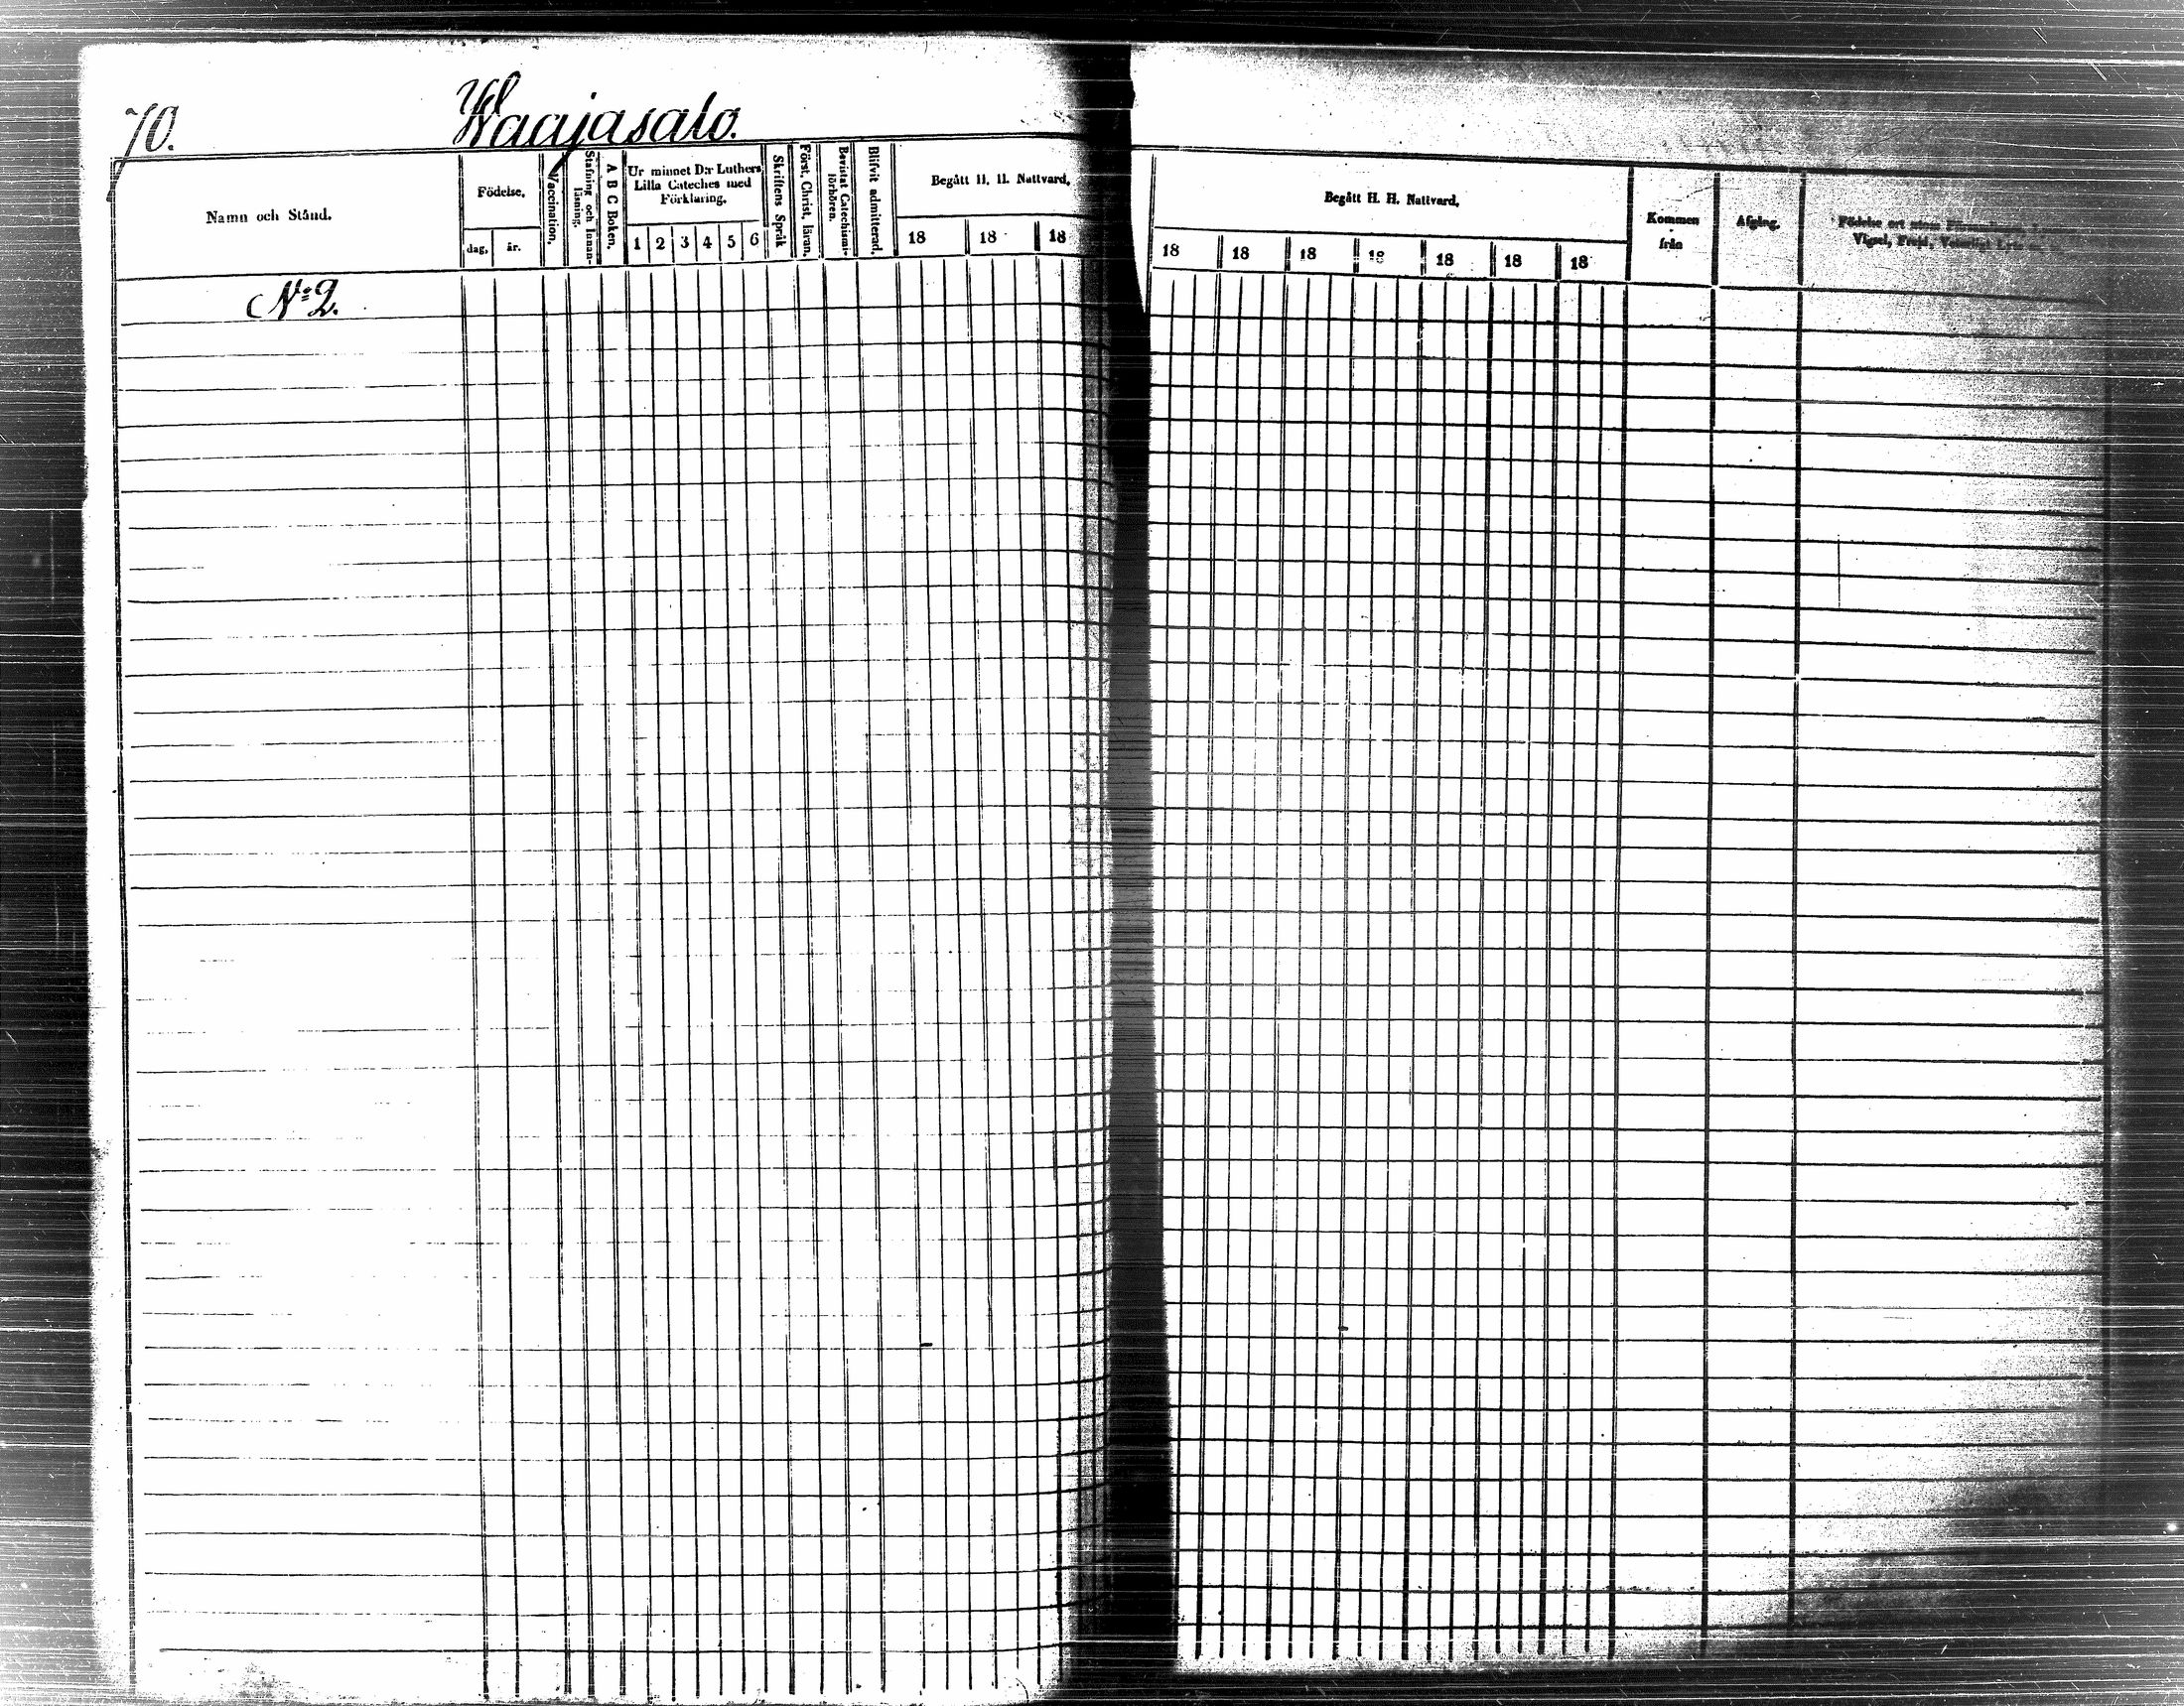 70.
Waajasalo.
Namn och Stånd.
Födelse,
dag,
år.
Vaccination,
Stafning och Innan-
läsning.
A B C Boken,
Ur minnet D:r Luthers
Lilla Cateches med
Förklaring,
1 2 3 4 5 6
Skriftens Språk
Först. Christ. läran,
Bevistat Catechismi-
förhören.
Blifvit admitterad,
Begått H. H. Nattvard,
18 18 18
Begått H. H. Nattvard,
18 18 18 18 18 18 18
Kommen
från
Afgång,
N:o 2.